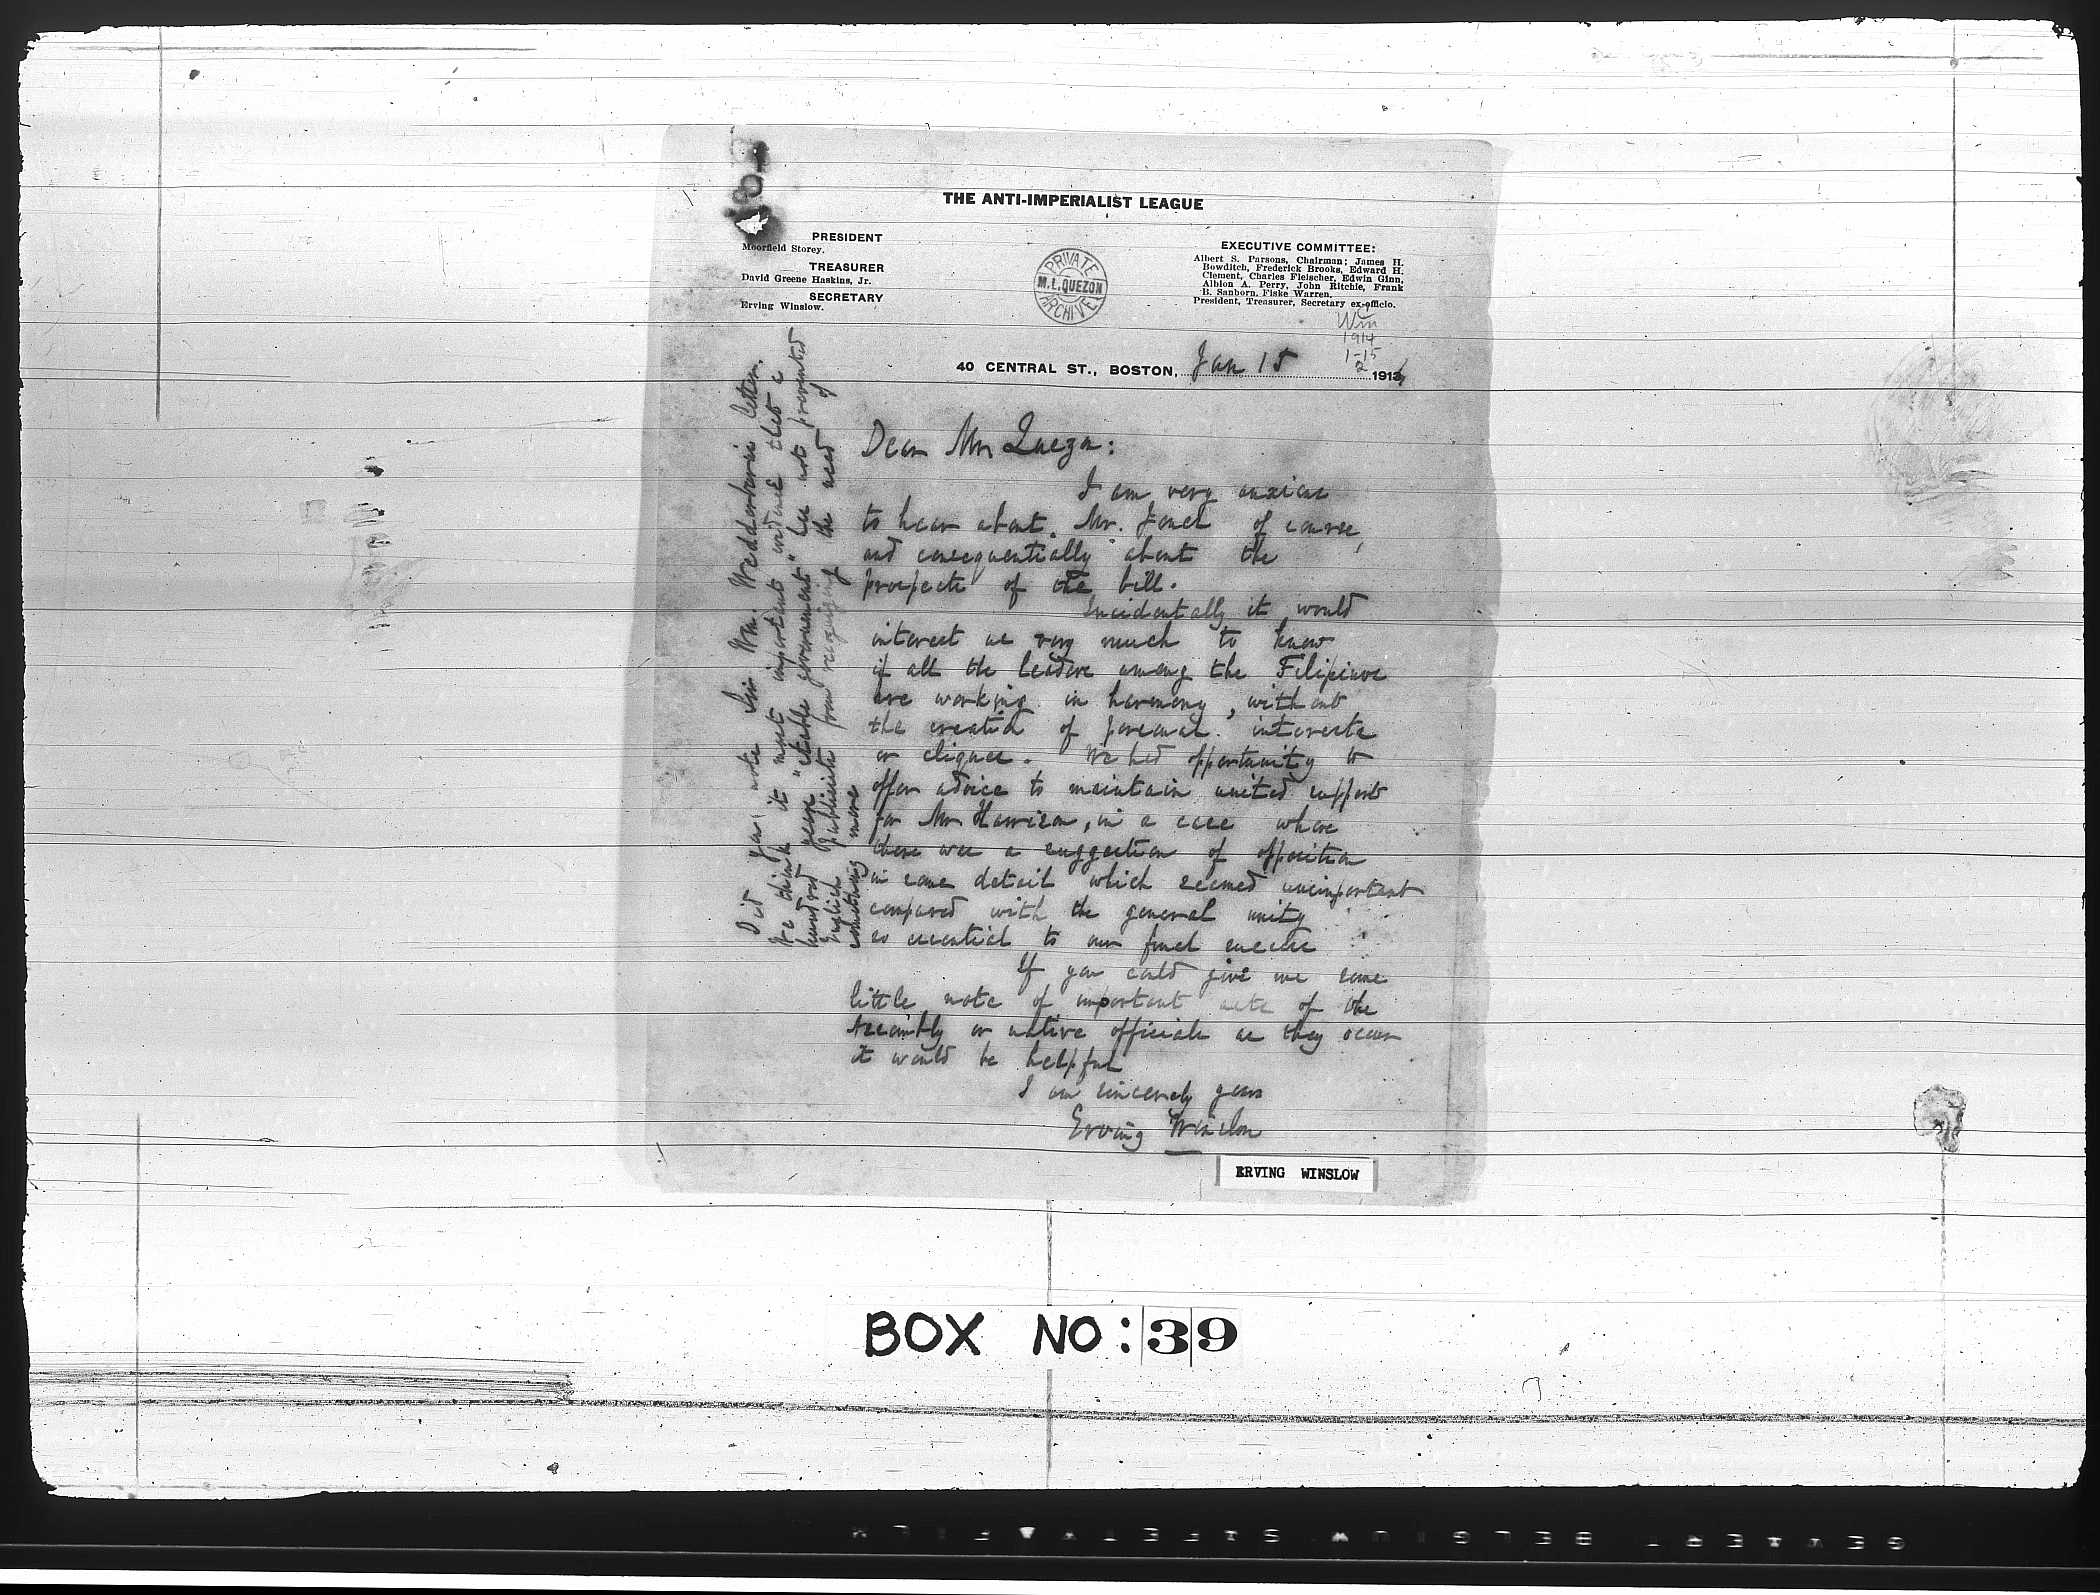 THE ANTI-IMPERIALIST LEAGUE
PRESIDENT
Moorfield Storey.
TREASURER
David Greene Haskins, Jr.
SECRETARY
Erving Winslow.
PRIVATE
M.L. QUEZON
ARCHIVE
EXECUTIVE COMMITTEE:
Albert S. Parsons, Chairman; James H.
Bowditch, Frederick Brooks, Edward H.
Clement, Charles Fleischer, Edwin Ginn,
Albion A. Perry, John Ritchie, Frank
B. Sanborn, Fiske Warren.
President, Treasurer, Secretary ex-officio.
Win
1914
1-15
2
40 CENTRAL ST., BOSTON, Jan 15 1914
Dear Mr Quezon:
I am very anxious
to hear about Mr. Jones of course,
and consequentially about the
prospects of the bill.
Incidentally it would
interest us very much to know
if all the leaders among the Filipinos
are working in harmony, without
the of personal interests
or cliques. We had opportunity to
offer advice to maintain united support
for Mr Harrison, in a case where
there was a suggestion of opposition
in some detail which seemed unimportant
compared with the general unity
so essential to our final success
If you could give me some
little note of important acts of the
Assembly or native officials as they occur
it would be helpful
I am sincerely yours
Erving Winslow
ERVING WINSLOW
Did you note Sir Wm. Wedderburn's letter.
We think it most important evidence that a
hundred years "stable government" has not prevented
English publicists from recognizing the need of
something more
BOX NO: 39
GEVAERT BELGIUM SAFETY FILM